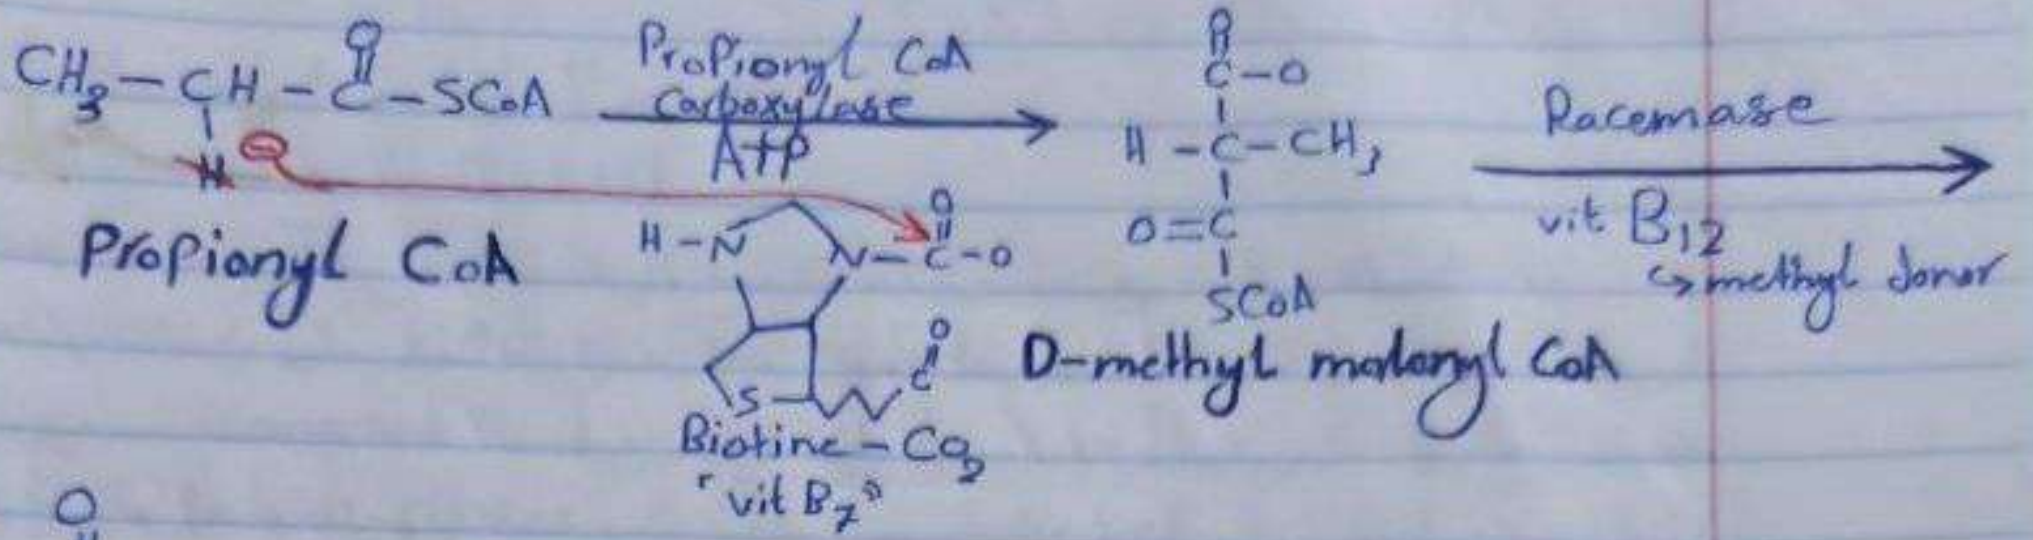 CH3 – CH – C – SCoA
O
H
Propionyl CoA
Propionyl CoA
Carboxylase
ATP
H – N
N – C – O
O
S
C
O
Biotine – CO2
"vit B7"
O
C – O
H – C – CH3
O = C
SCoA
D-methyl malonyl CoA
Racemase
vit B12
↳ methyl donor
O